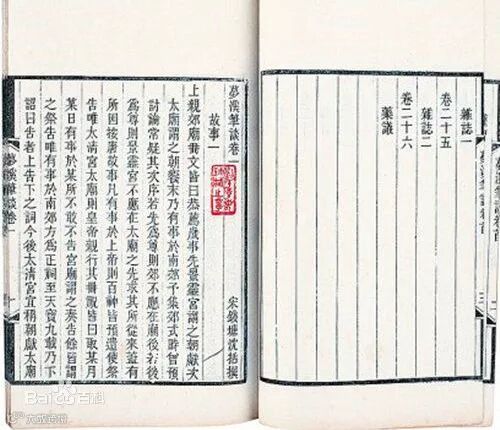 雜誌一
卷二十五
雜誌二
卷二十六
藥議
夢溪筆談卷首
三
夢溪筆談卷一
宋錢塘沈括撰
故事一
上親郊廟冊文皆曰恭薦歲事先景靈宮謂之朝獻次
太廟謂之朝饗末乃有事於南郊予集郊式時曾預
討論常疑其次序若先爲尊則郊不應在廟後若後
爲尊則景靈宮不應在太廟之先求其所從來蓋有
所因按唐故事凡有事於上帝則百神皆預遣使祭
告唯太清宮太廟則皇帝親行其冊祝皆曰取某月
某日有事於某所不敢不告宮廟謂之奏告餘皆謂
之祭告唯有事於南郊方爲正祠至天寶九載乃下
詔曰告者上告下之詞今後太清宮宜稱朝獻太廟
夢溪筆談卷一
一
Bai百科